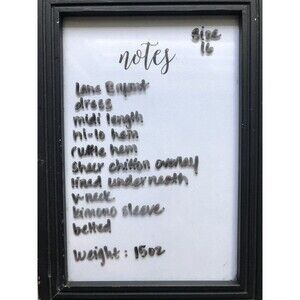 Size
16
notes
Lane Bryant
dress
midi length
hi-lo hem
ruffle hem
sheer chiffon overlay
lined underneath
v-neck
kimono sleeve
belted
Weight : 15oz